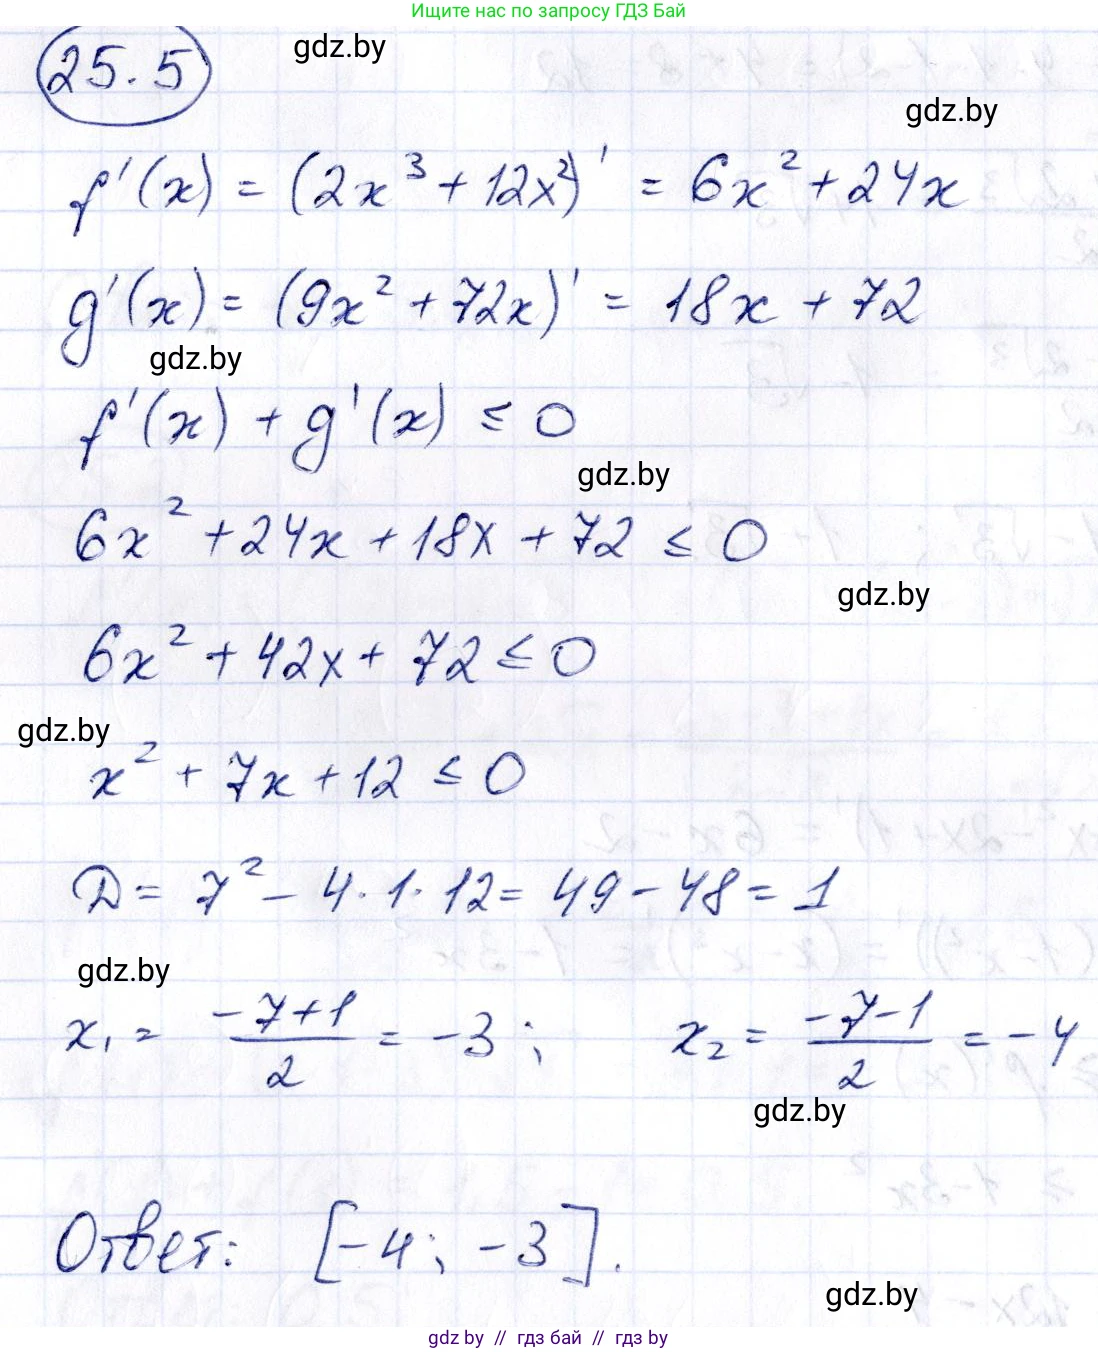 Ищите нас по запросу ГДЗ Бай
25.5
gdz.by
gdz.by
f'(x) = (2x³ + 12x²)' = 6x² + 24x
g'(x) = (9x² + 72x)' = 18x + 72
gdz.by
f'(x) + g'(x) ≤ 0
gdz.by
6x² + 24x + 18x + 72 ≤ 0
gdz.by
6x² + 42x + 72 ≤ 0
gdz.by
x² + 7x + 12 ≤ 0
D = 7² - 4·1·12 = 49 - 48 = 1
gdz.by
x₁ = (-7+1)/2 = -3; x₂ = (-7-1)/2 = -4
gdz.by
Ответ: [-4; -3].
gdz.by
gdz by // гдз бай // гдз by